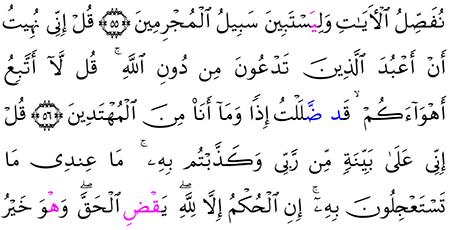 نُفَصِّلُ ٱلْأٓيَٰتِ وَلِيَسْتَبِينَ سَبِيلُ ٱلْمُجْرِمِينَ ۝٥٥ قُلْ إِنِّى نُهِيتُ
أَنْ أَعْبُدَ ٱلَّذِينَ تَدْعُونَ مِن دُونِ ٱللَّهِۚ قُل لَّآ أَتَّبِعُ
أَهْوَآءَكُمْۙ قَد ضَّلَلْتُ إِذًا وَمَآ أَنَا۠ مِنَ ٱلْمُهْتَدِينَ ۝٥٦ قُلْ
إِنِّى عَلَىٰ بَيِّنَةٍ مِّن رَّبِّى وَكَذَّبْتُم بِهِۦۚ مَا عِندِى مَا
تَسْتَعْجِلُونَ بِهِۦٓۚ إِنِ ٱلْحُكْمُ إِلَّا لِلَّهِۖ يَقْضِ ٱلْحَقَّۖ وَهْوَ خَيْرُ